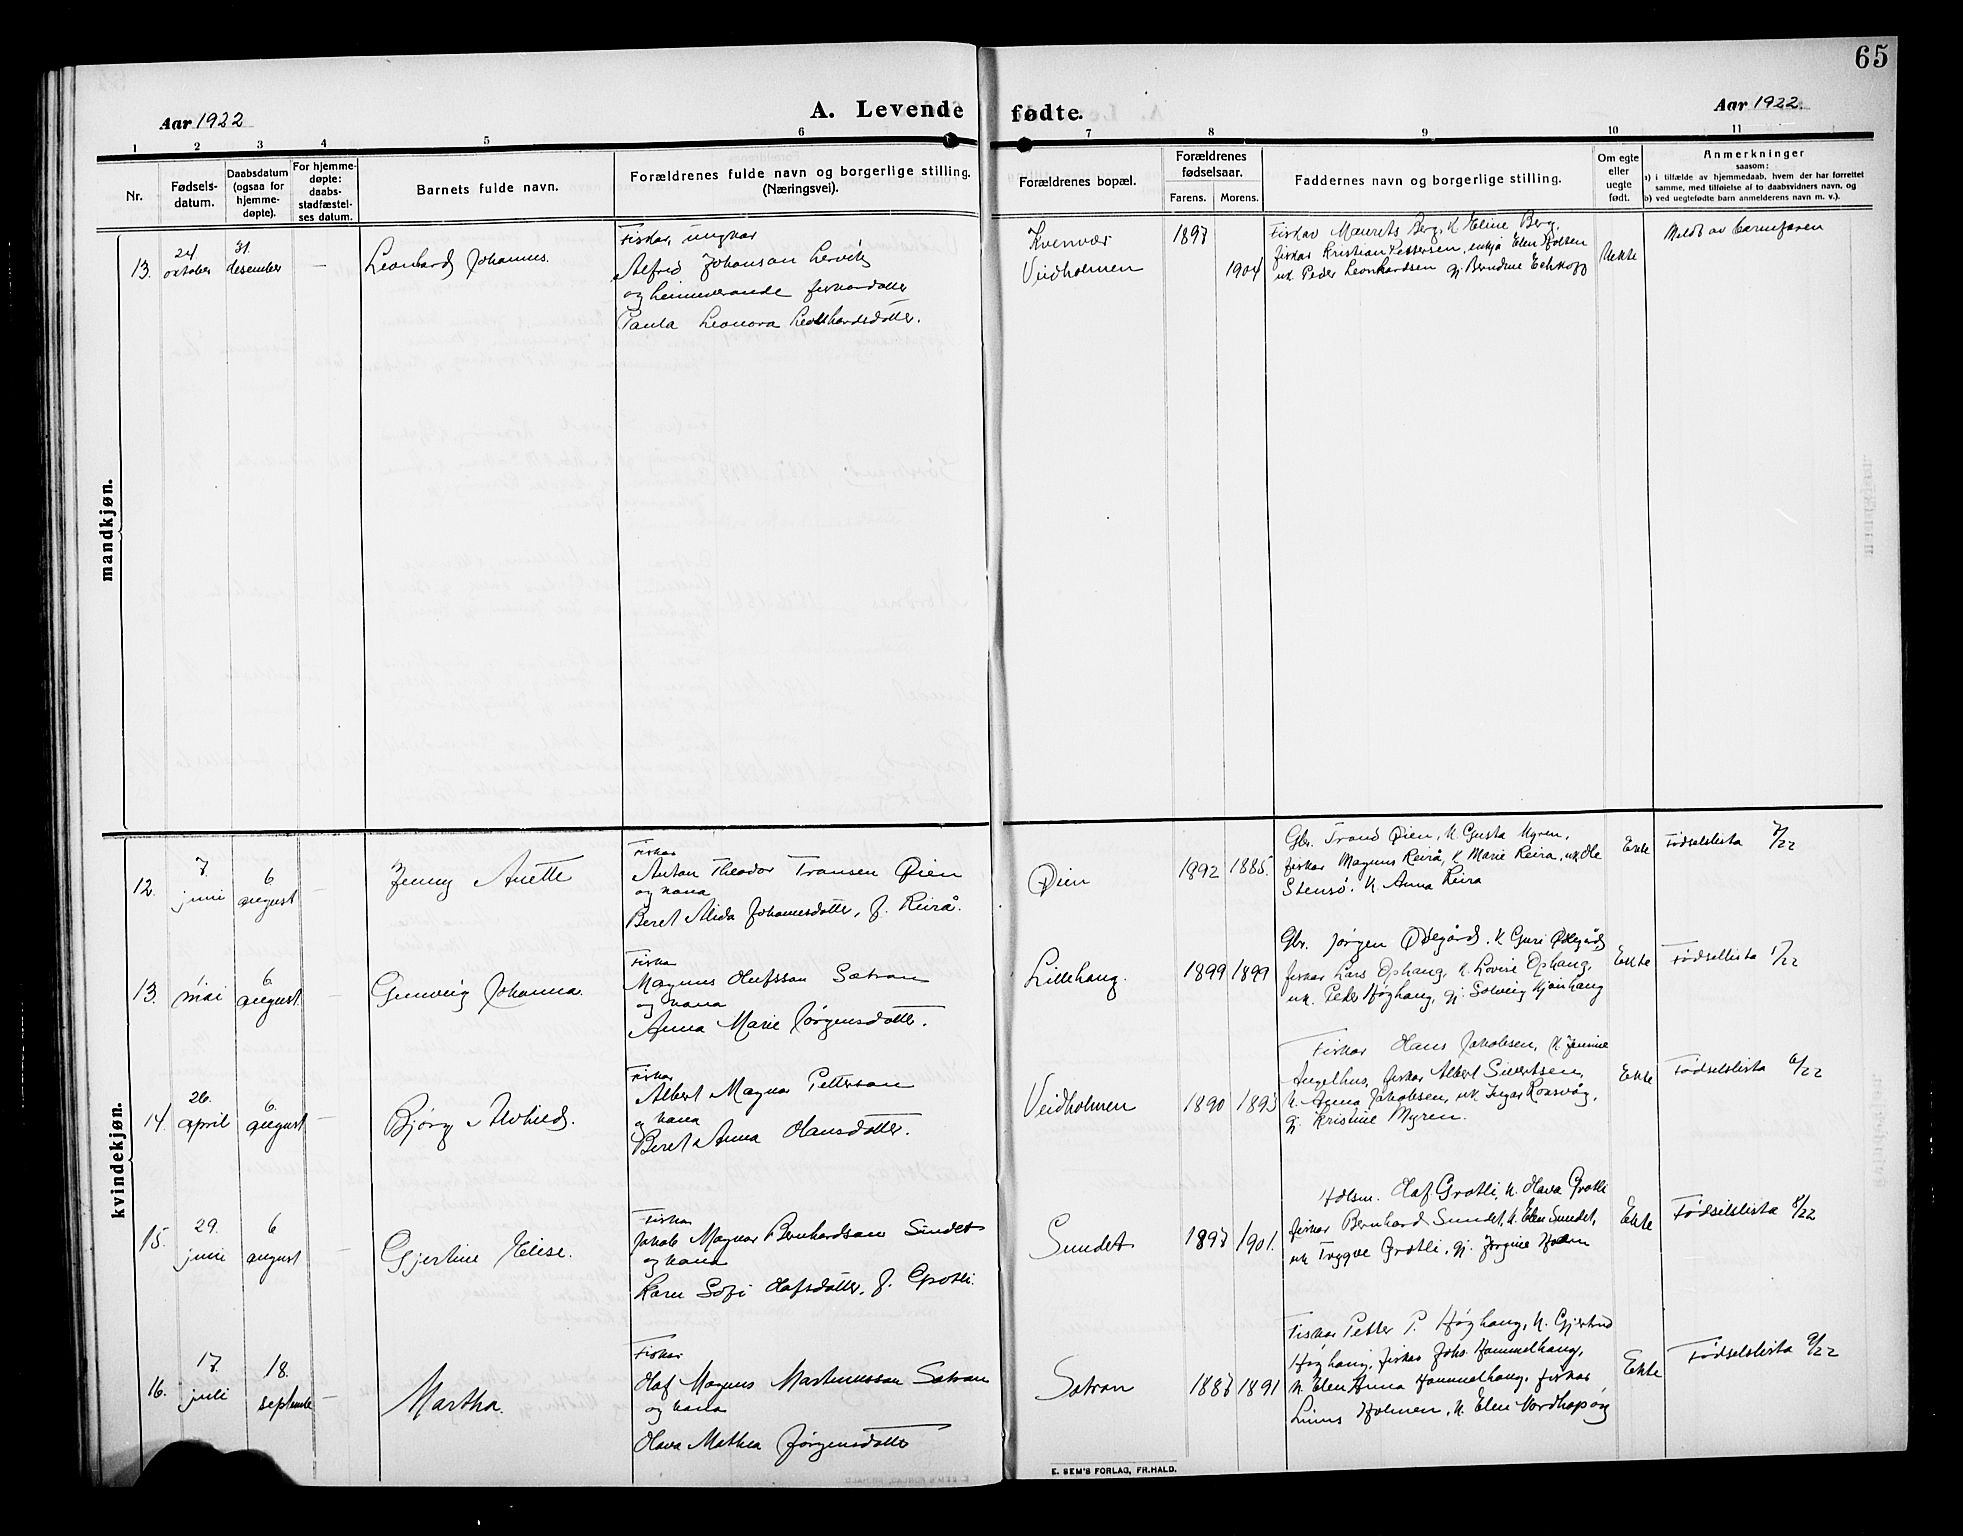 65
Aar 1922
A. Levende fødte.
Aar 1922.
1 2 3 4 5 6 7 8 9 10 11
Nr.
Fødsels-
datum.
Daabsdatum
(ogsaa for
hjemme-
døpte).
For hjemme-
døpte:
daabs-
stadfæstel-
ses datum.
Barnets fulde navn.
Forældrenes fulde navn og borgerlige stilling.
(Næringsvei).
Forældrenes bopæl.
Forældrenes
fødselsaar.
Farens. Morens.
Faddernes navn og borgerlige stilling.
Om egte
eller
uegte
født.
Anmerkninger
saasom:
a) i tilfælde av hjemmedaab, hvem der har forrettet
samme, med tilføielse af to daabsvidners navn, og
b) ved uegtefødte barn anmelderens navn m. v.).
mandkjøn.
13.
24
oktober
31.
desember
—
Leonhard Johannes.
Fiskar, ungkar
Alfred Johansan Lervik
og heimeverande fiskardotter
Paula Leonora Leonhardsdotter.
Kvenvær
Veidholmen
1897
1904
Fiskar Maurits Berg, k. Eline Berg,
fiskar Kristian Pettersen, enkja Elen Holsen
uk. Peder Leonhardsen gj. Berndine
Uekte
Meldt av barnefaren
kvindekjøn.
12.
7.
juni
6
august
—
Jenny Anette
Fiskar
Anton Theodor Transen Øien
og kona
Beret Alida Johannesdotter, f. Reirå.
Øien
1892 1885.
Gbr. Trond Øien, k. Gusta Myren,
fiskar Magnus Reirå, k. Marie Reira, uk. Ole
Stensø. k. Anna Reira
Ekte
Fødselslista 7/22
13.
mai
6
august
—
Gunveig Johanna.
Fiskar
Magnus Olufssan Sætran
og kona
Anna Marie Jørgensdotter.
Lillehaug.
1899 1899
Gbr. Jørgen Ødegård. k. Guri Ødegård,
fiskar Lars Ophaug, k. Lovise Ophaug,
uk. Peder Høghaug, gj. Solveig
Ekte
Fødsellista 1/22
14.
26.
april
6.
august
—
Bjørg Alvhild.
Fiskar
Albert Magnar Pettersan
og kona
Beret Anna Hansdotter.
Veidholmen
1890 1893
Fiskar Hans Jakobsen, k. Jensine
Angelhus, fiskar Albert Sivertsen,
k. Anna Jakobsen, uk. Ingar Korsvåg,
gj. Kristine Myren.
Ekte
Fødselslista 6/22
15.
29.
juni
6
august
—
Gjertine Elise.
Fiskar
Jakob Magnar Bernhardsan Sundet
og kona
Karen Sofi Olafsdotter, f. Grotli.
Sundet
1897 1901.
Olaf Grotli, k. Olava Grotli
fiskar Bernhard Sundet, k. Elen Sundet,
uk Tryggve Grotli, gj. Jørgine
Ekte
Fødselslista 8/22
16.
17.
juli
18.
september
—
Martha.
Fiskar
Olaf Magnus Martinussan Sætran
og kona
Olava Mathea Jørgensdotter
Sætran
1887 1891
Fiskar Petter P. Høghaug, k. Gjertrud
Høghaug, fiskar Johs. Hammelhaug,
k. Elen Anna Hammelhaug, fiskar
Linus Holmen, k. Elen
Ekte
Fødselslista 9/22
E. SEM'S FORLAG, FR.HALD.